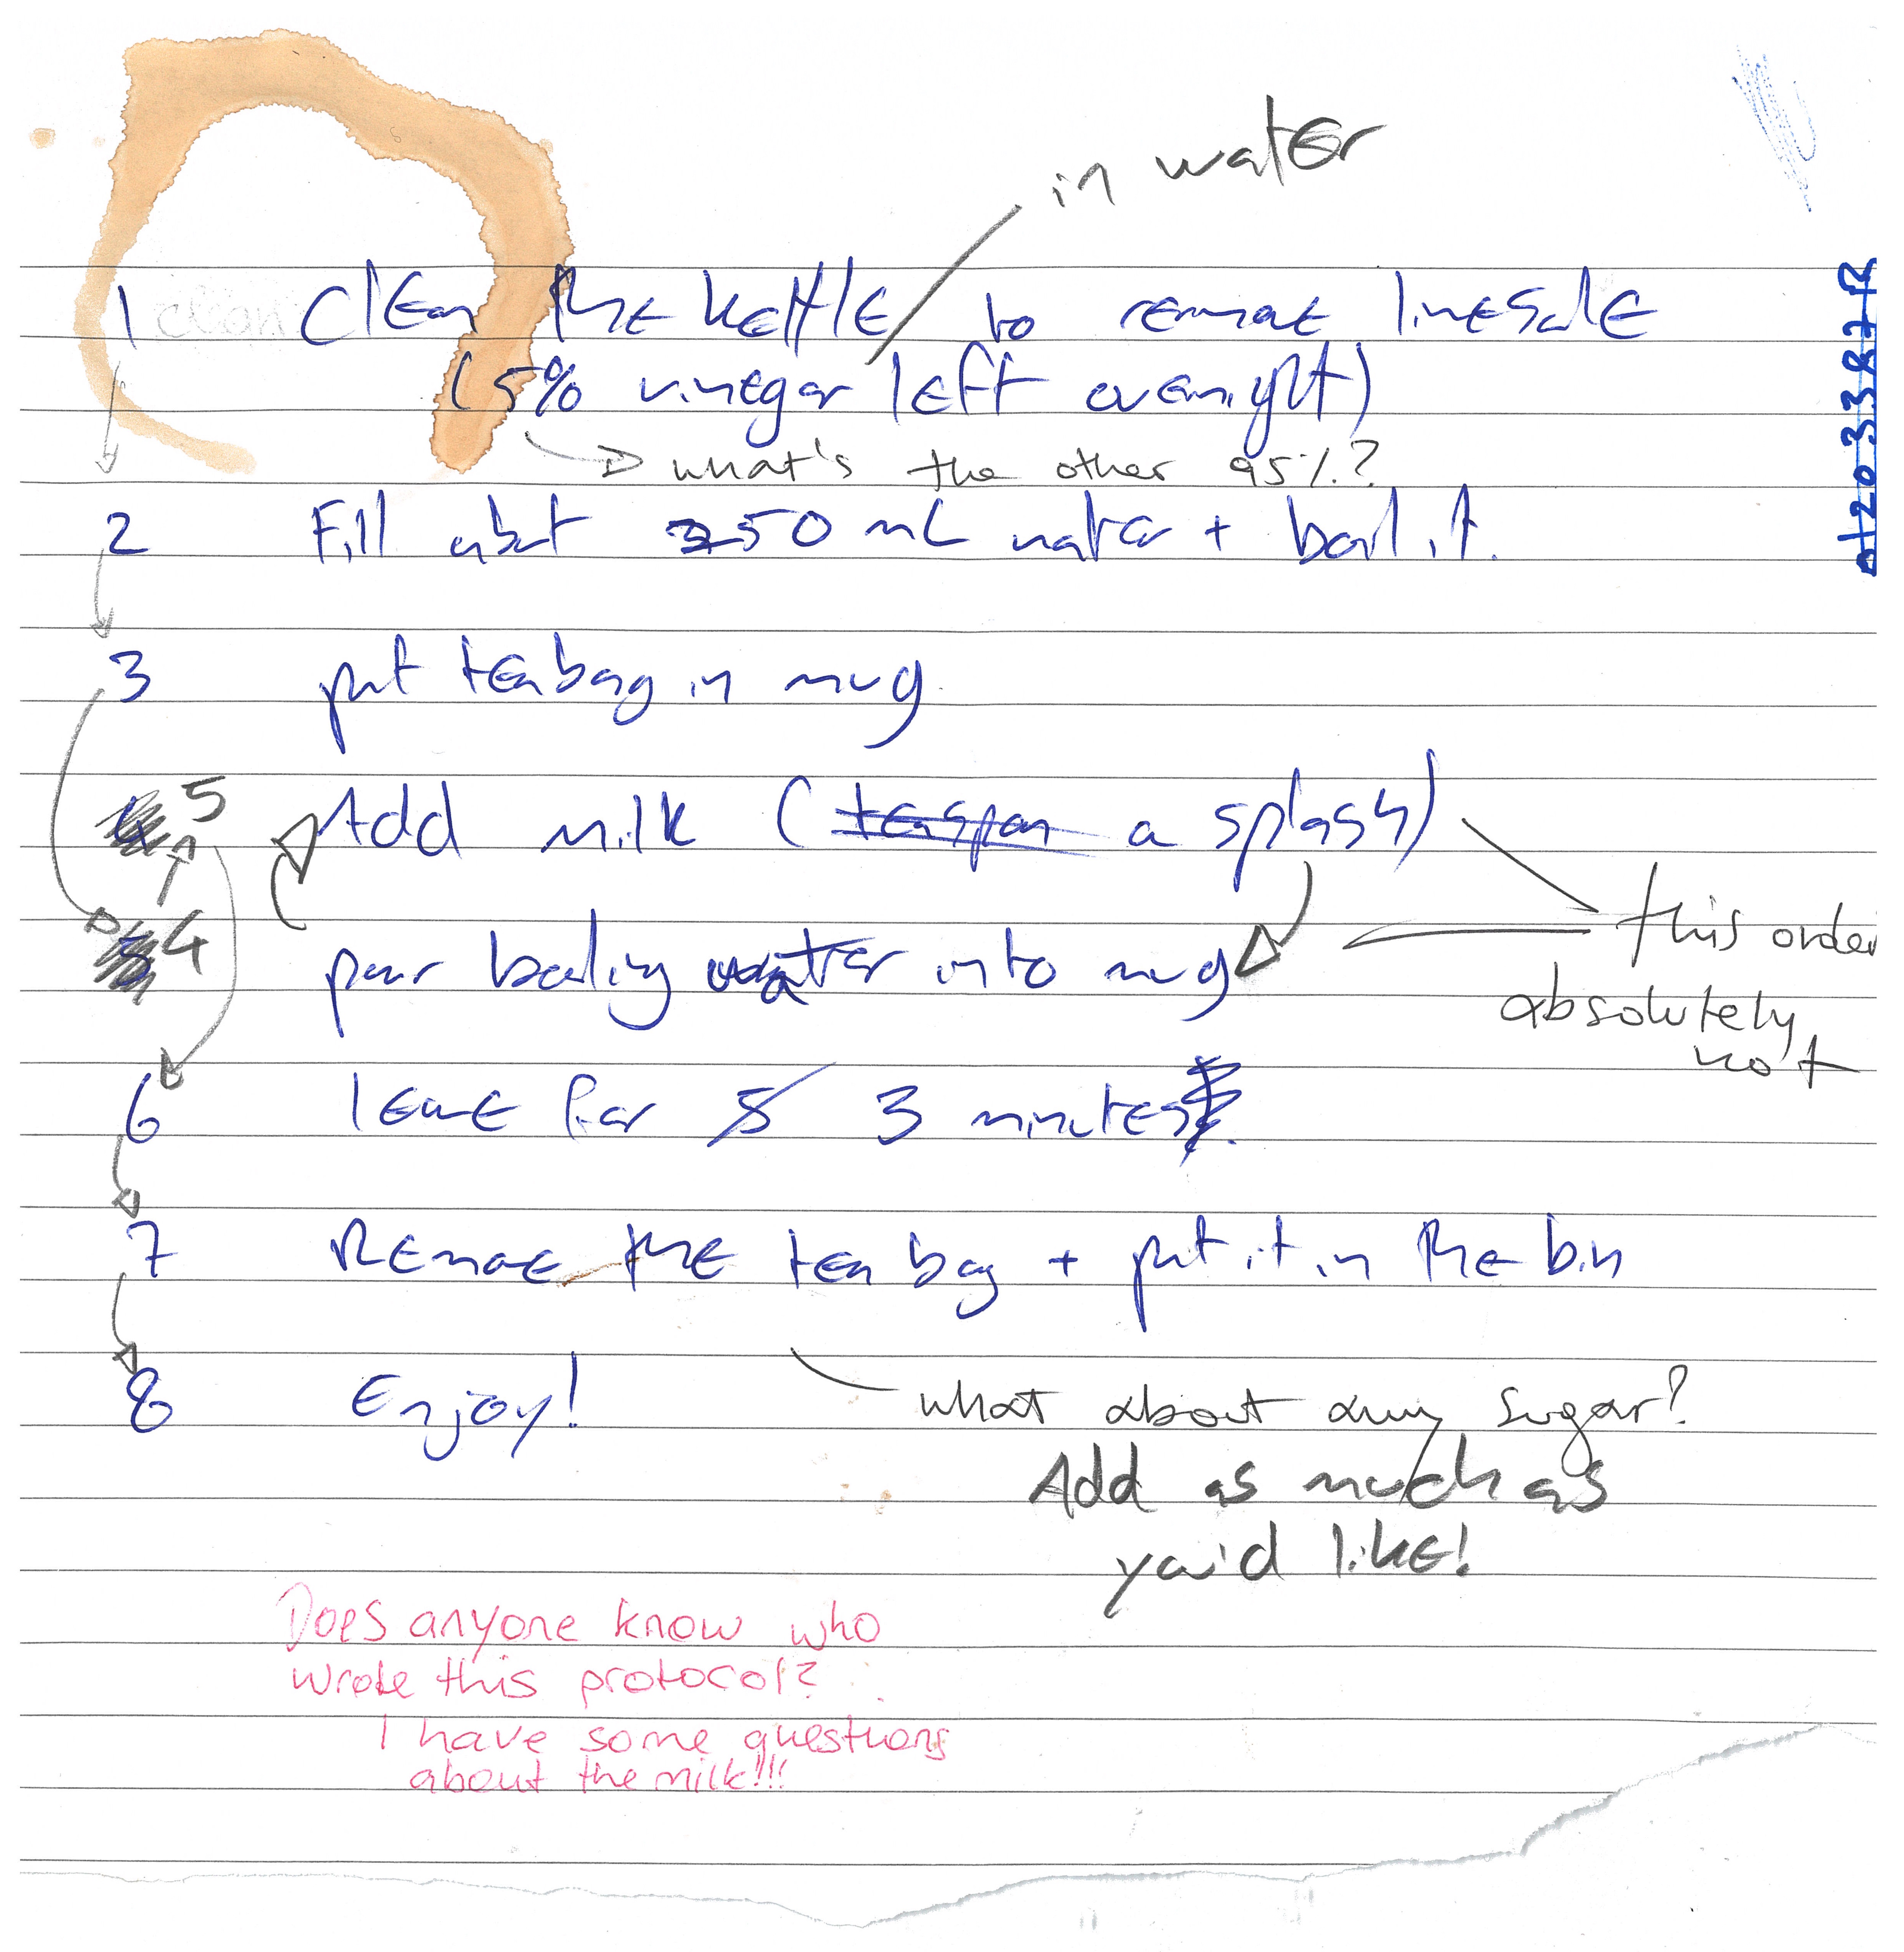 in water
1 clean the kettle to remove limescale
(5% vinegar left overnight)
what's the other 95%?
2 Fill about 250 mL water + boil it.
3 put teabag in mug
4 5 Add milk (teaspoon a splash)
this order
absolutely
not
5 4 pour boiling water into mug
6 leave for 5 3 minutes
7 Remove the tea bag + put it in the bin
8 Enjoy!
what about any sugar?
Add as much as
you'd like!
Does anyone know who
wrote this protocol?
I have some questions
about the milk!!!